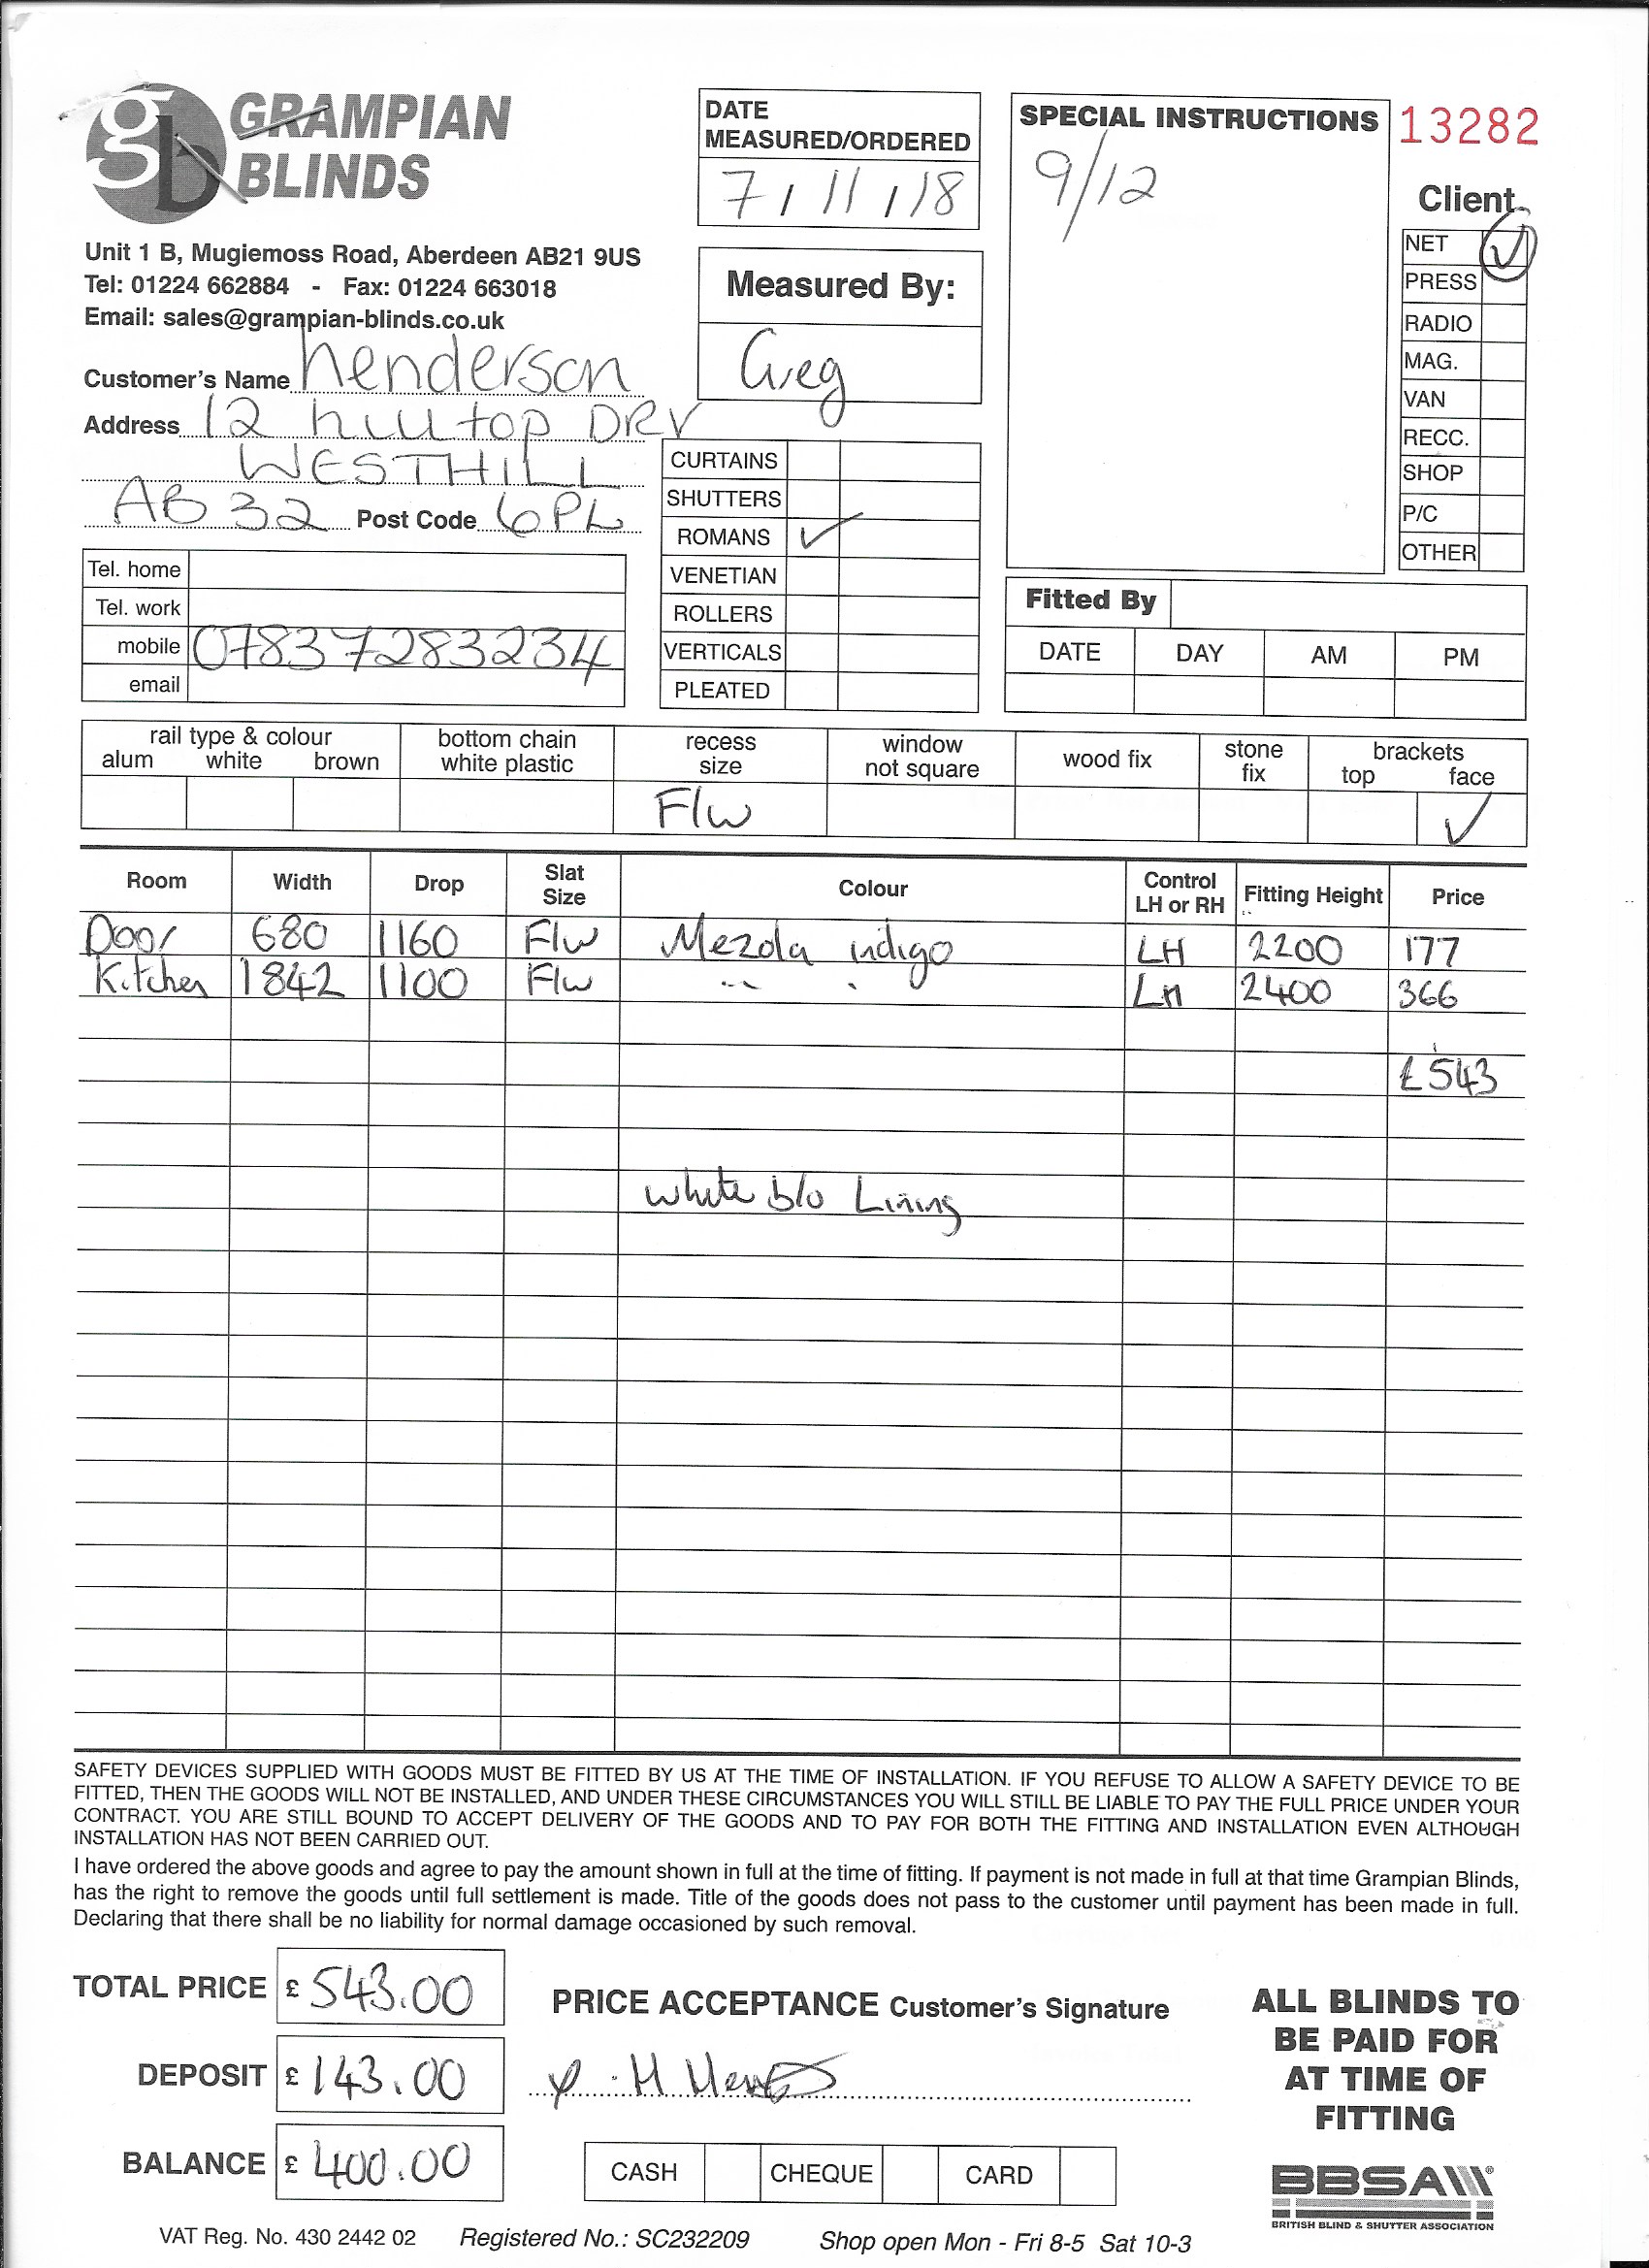 gb GRAMPIAN
BLINDS
Unit 1 B, Mugiemoss Road, Aberdeen AB21 9US
Tel: 01224 662884 - Fax: 01224 663018
Email: sales@grampian-blinds.co.uk
Customer's Name henderson
Address 12 hilltop DRV
WESTHILL
AB 32 Post Code 6PL
Tel. home
Tel. work
mobile 07837283234
email
DATE
MEASURED/ORDERED
7/11/18
Measured By:
Greg
CURTAINS
SHUTTERS
ROMANS ✓
VENETIAN
ROLLERS
VERTICALS
PLEATED
SPECIAL INSTRUCTIONS
9/12
13282
Client
NET ✓
PRESS
RADIO
MAG.
VAN
RECC.
SHOP
P/C
OTHER
Fitted By
DATE DAY AM PM
rail type & colour bottom chain recess window wood fix stone brackets
alum white brown white plastic size not square fix top face
F/w ✓
Room Width Drop Slat Size Colour Control LH or RH Fitting Height Price
Door 680 1160 F/w Mezola indigo LH 2200 177
Kitchen 1842 1100 F/w " " LH 2400 366
£543
White b/o Lining
SAFETY DEVICES SUPPLIED WITH GOODS MUST BE FITTED BY US AT THE TIME OF INSTALLATION. IF YOU REFUSE TO ALLOW A SAFETY DEVICE TO BE
FITTED, THEN THE GOODS WILL NOT BE INSTALLED, AND UNDER THESE CIRCUMSTANCES YOU WILL STILL BE LIABLE TO PAY THE FULL PRICE UNDER YOUR
CONTRACT. YOU ARE STILL BOUND TO ACCEPT DELIVERY OF THE GOODS AND TO PAY FOR BOTH THE FITTING AND INSTALLATION EVEN ALTHOUGH
INSTALLATION HAS NOT BEEN CARRIED OUT.
I have ordered the above goods and agree to pay the amount shown in full at the time of fitting. If payment is not made in full at that time Grampian Blinds,
has the right to remove the goods until full settlement is made. Title of the goods does not pass to the customer until payment has been made in full.
Declaring that there shall be no liability for normal damage occasioned by such removal.
TOTAL PRICE £ 543.00
DEPOSIT £ 143.00
BALANCE £ 400.00
PRICE ACCEPTANCE Customer's Signature
CASH CHEQUE CARD
ALL BLINDS TO
BE PAID FOR
AT TIME OF
FITTING
BBSA®
BRITISH BLIND & SHUTTER ASSOCIATION
VAT Reg. No. 430 2442 02 Registered No.: SC232209 Shop open Mon - Fri 8-5 Sat 10-3